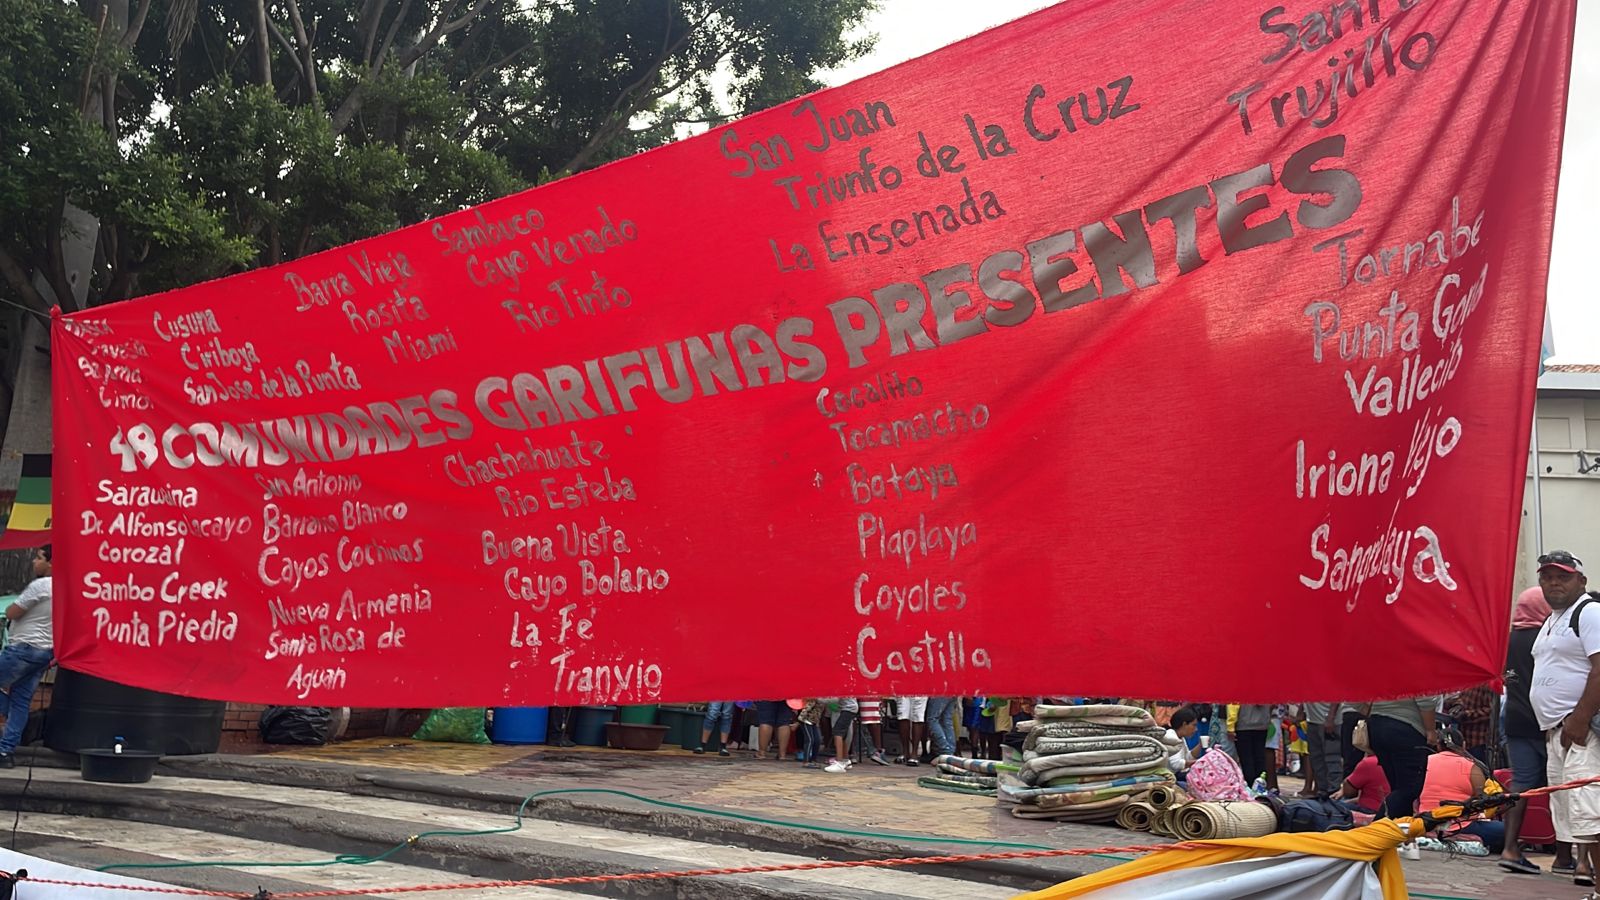 Cusuna
Ciriboya
San Jose de la Punta
Barra Vieja
Rosita
Miami
Sambuco
Cayo Venado
Rio Tinto
San Juan
Triunfo de la Cruz
La Ensenada
Trujillo
48 COMUNIDADES GARIFUNAS PRESENTES
Sarawina
Dr. Alfonso
Corozal
Sambo Creek
Punta Piedra
San Antonio
Barranco Blanco
Cayos Cochinos
Nueva Armenia
Santa Rosa de
Aguan
Chachahuate
Rio Esteba
Buena Vista
Cayo Bolano
La Fe
Cocalito
Tocamacho
Bataya
Plaplaya
Coyoles
Castilla
Tornabe
Punta
Vallecito
Iriona Vejo
Sangrelaya